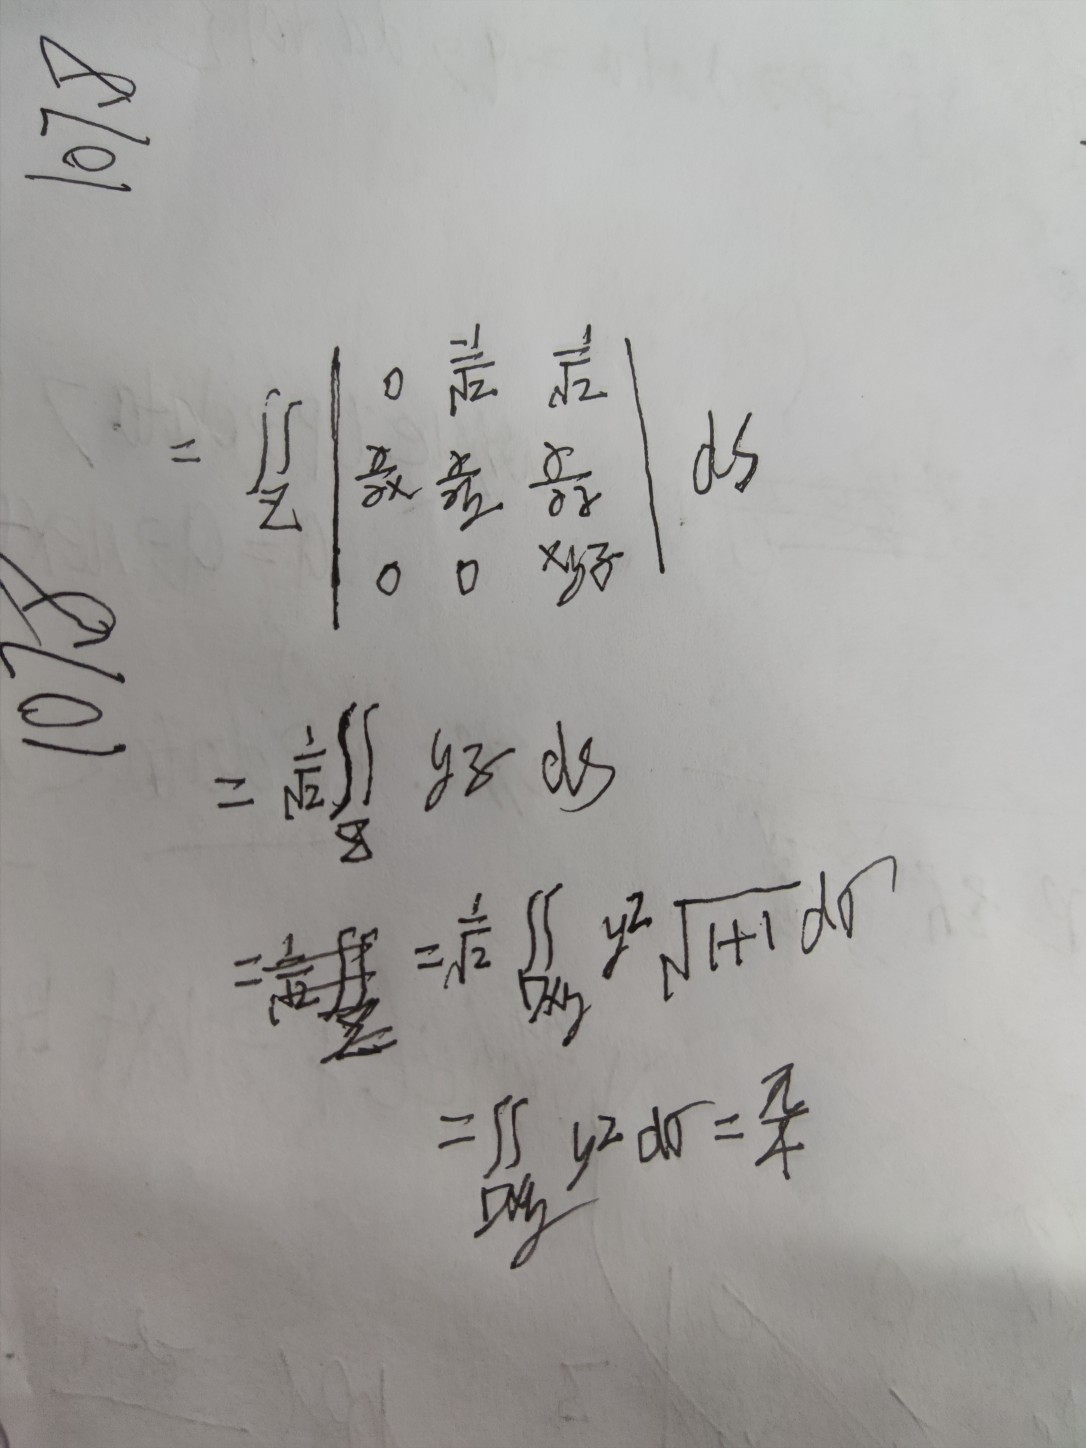 1078
= ∬_Σ | 0 -1/√2 1/√2 | ds
| ∂/∂x ∂/∂y ∂/∂z |
| 0 0 xyz |
1078
= 1/√2 ∬_Σ yz ds
= 1/√2 ∬_Σ = 1/√2 ∬_Dxy y² √(1+1) dσ
= ∬_Dxy y² dσ = π/4